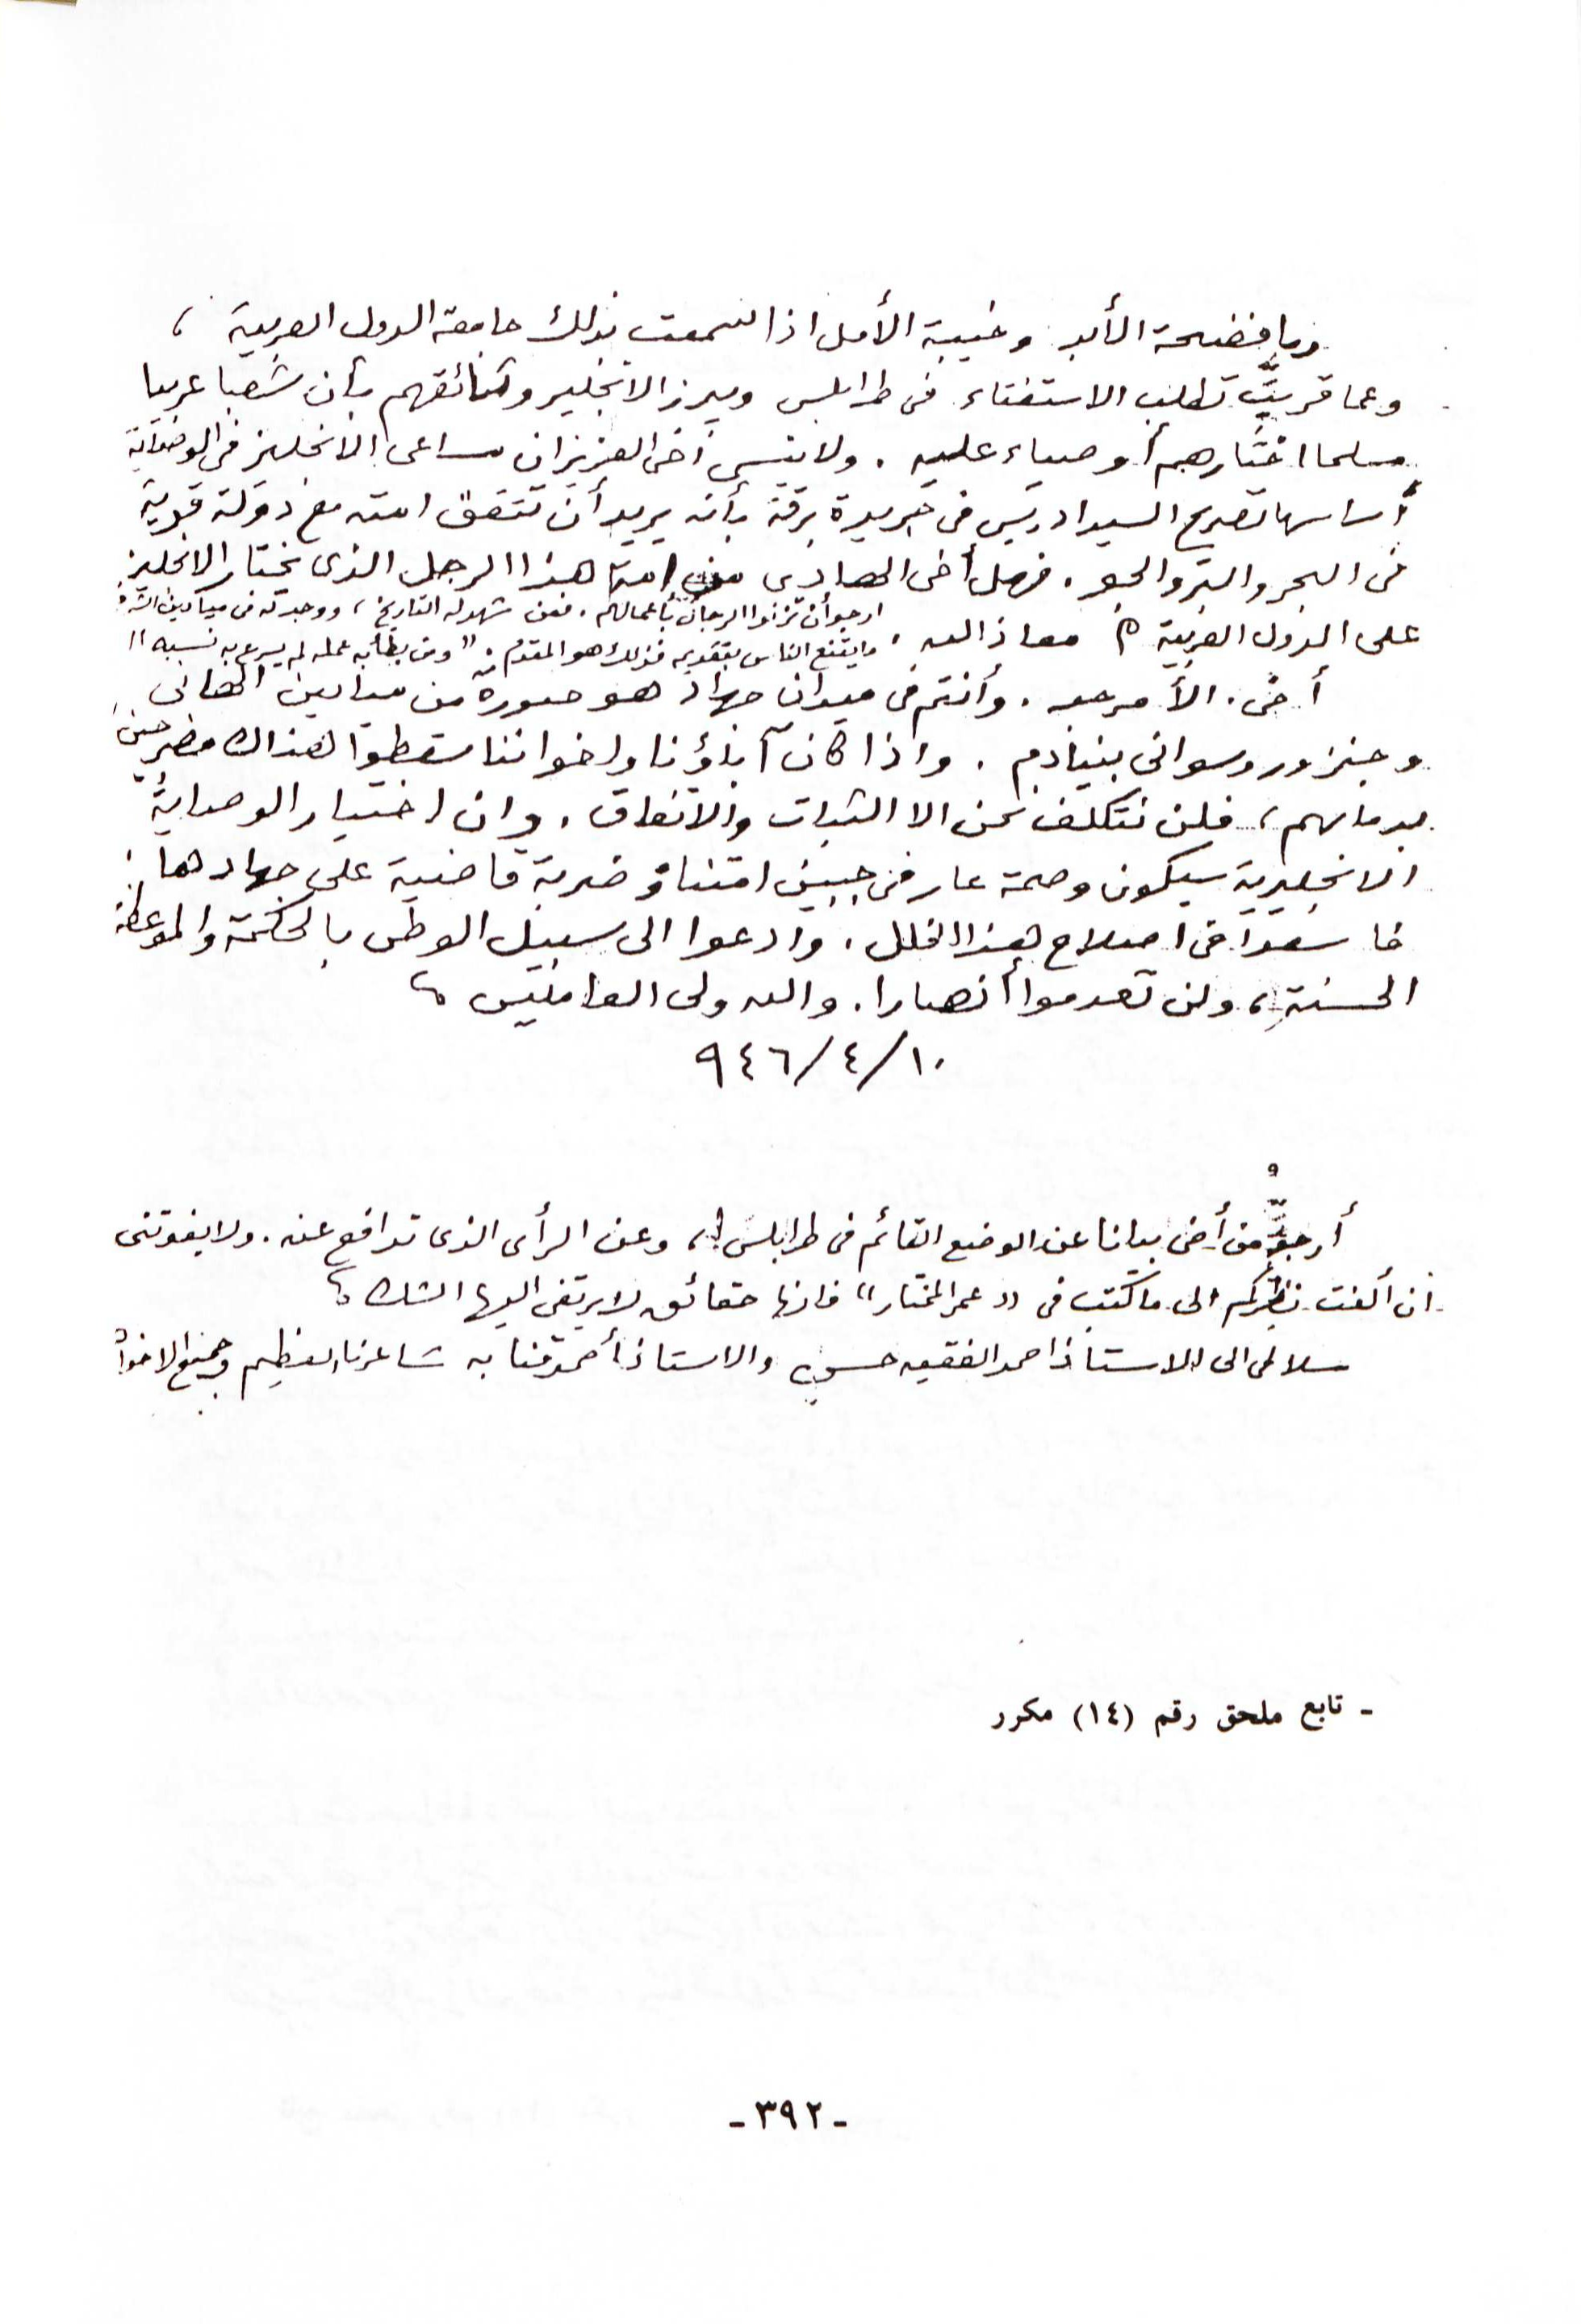 ويا فضيحة الأبد وخيبة الأمل اذا سمعت بذلك جامعة الدول العربية ،
وعما قريب تطلب الاستفتاء فى طرابلس ويبرز الانجليز وثائقهم بأن شعبا عربيا
مسلما اختارهم أوصياء عليه . ولا ينسى أخى العزيز ان مساعى الانجليز فى الوصاية
أساسها تصريح السيد ادريس فى جريدة برقة بأنه يريد أن تتفق امته مع دولة قوية
فى البحر والبر والجو . فهل أخى الهادى من امتنا هذا الرجل الذى يختار الانجليز
على الدول العربية ؟ معاذ الله .
ارجو أن تزنوا الرجال بأعمالهم . فمن شهد له التاريخ ، ووجدته فى ميادين
واقتنع الناس بتقديمه فذلك هو المقدم . " ومن بطأ به عمله لم يسرع به نسبه "
أخى . الأمر جد . وأنتم فى ميدان جهاد هو صورة من ميادين الهانى
وجنزور وسوانى بنيادم . واذا كان آباؤنا واخواننا سقطوا هنالك مضرجين
بدمائهم ، فلن نتكلف نحن الا الثبات والاتفاق . وان اختيار الوصاية
الانجليزية سيكون وصمة عار فى جبين امتنا وضربة قاضية على جهادها .
فاسعوا فى اصلاح هذا الخلل . وادعوا الى سبيل الوطن بالحكمة والموعظة
الحسنة ، ولن تعدموا أنصارا . والله ولى العاملين ؛
١٠/٤/٩٤٦
أرجو من أخى بيانا عن الوضع القائم فى طرابلس ، وعن الرأى الذى تدافع عنه . ولا يفوتنى
ان ألفت نظركم الى ما كتب فى " عمر المختار " فانها حقائق لا يرتقى اليها الشك ؛
سلامى الى الاستاذ احمد الفقيه حسن والاستاذ أحمد قنابه شاعرنا العظيم وجميع الاخوان
- تابع ملحق رقم (١٤) مكرر
- ٣٩٢ -